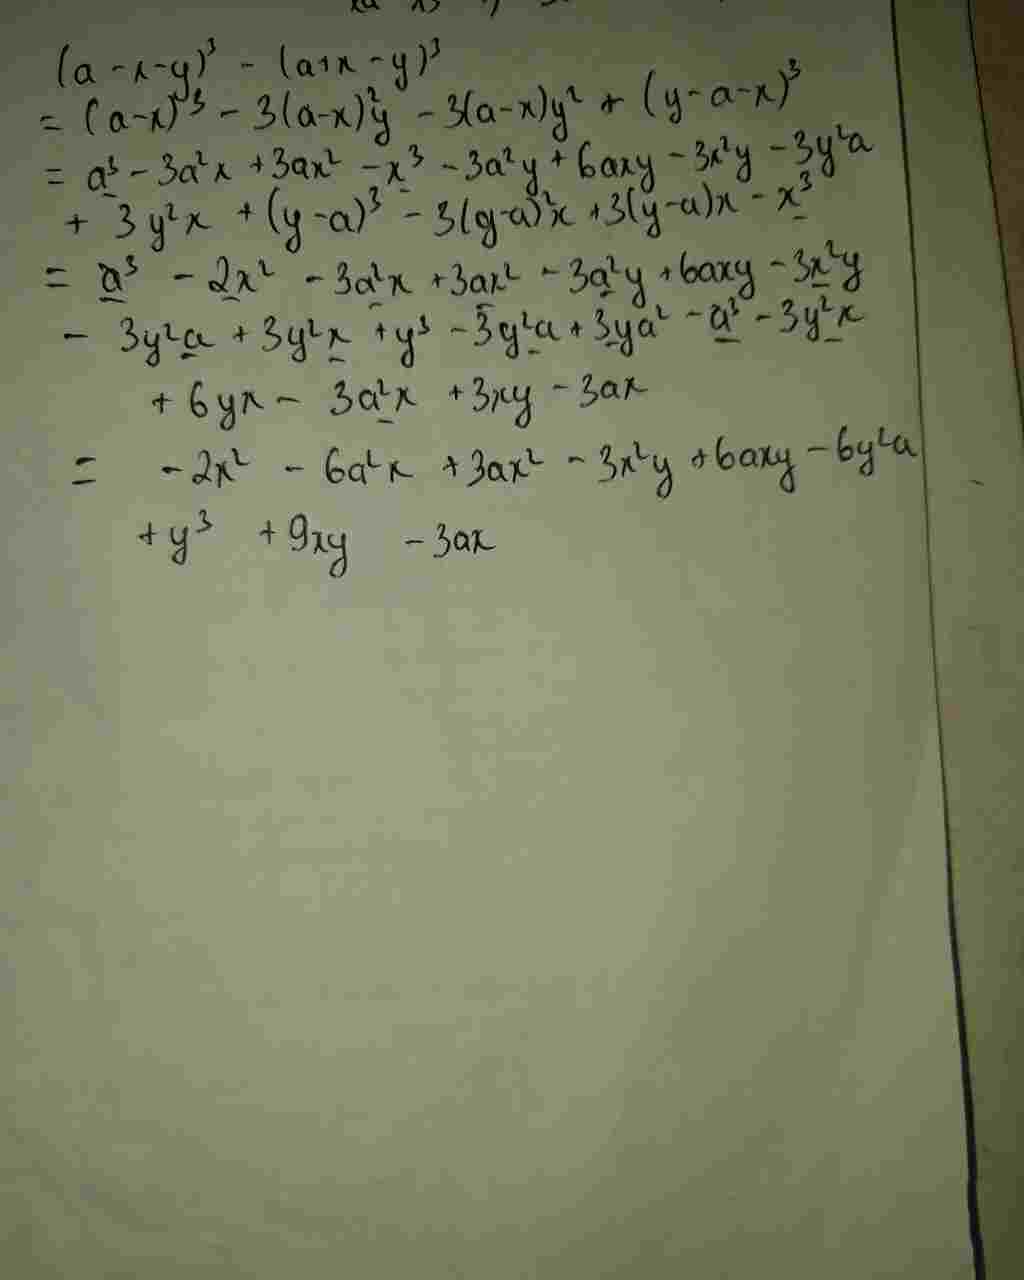 (a-x-y)³ - (a+x-y)³
= (a-x)³ - 3(a-x)²y - 3(a-x)y² + (y-a-x)³
= a³ - 3a²x + 3ax² - x³ - 3a²y + 6axy - 3x²y - 3y²a
+ 3y²x + (y-a)³ - 3(y-a)²x + 3(y-a)x - x³
= a³ - 2x² - 3a²x + 3ax² - 3a²y + 6axy - 3x²y
- 3y²a + 3y²x + y³ - 3y²a + 3ya² - a³ - 3y²x
+ 6yx - 3a²x + 3xy - 3ax
= -2x² - 6a²x + 3ax² - 3x²y + 6axy - 6y²a
+ y³ + 9xy - 3ax